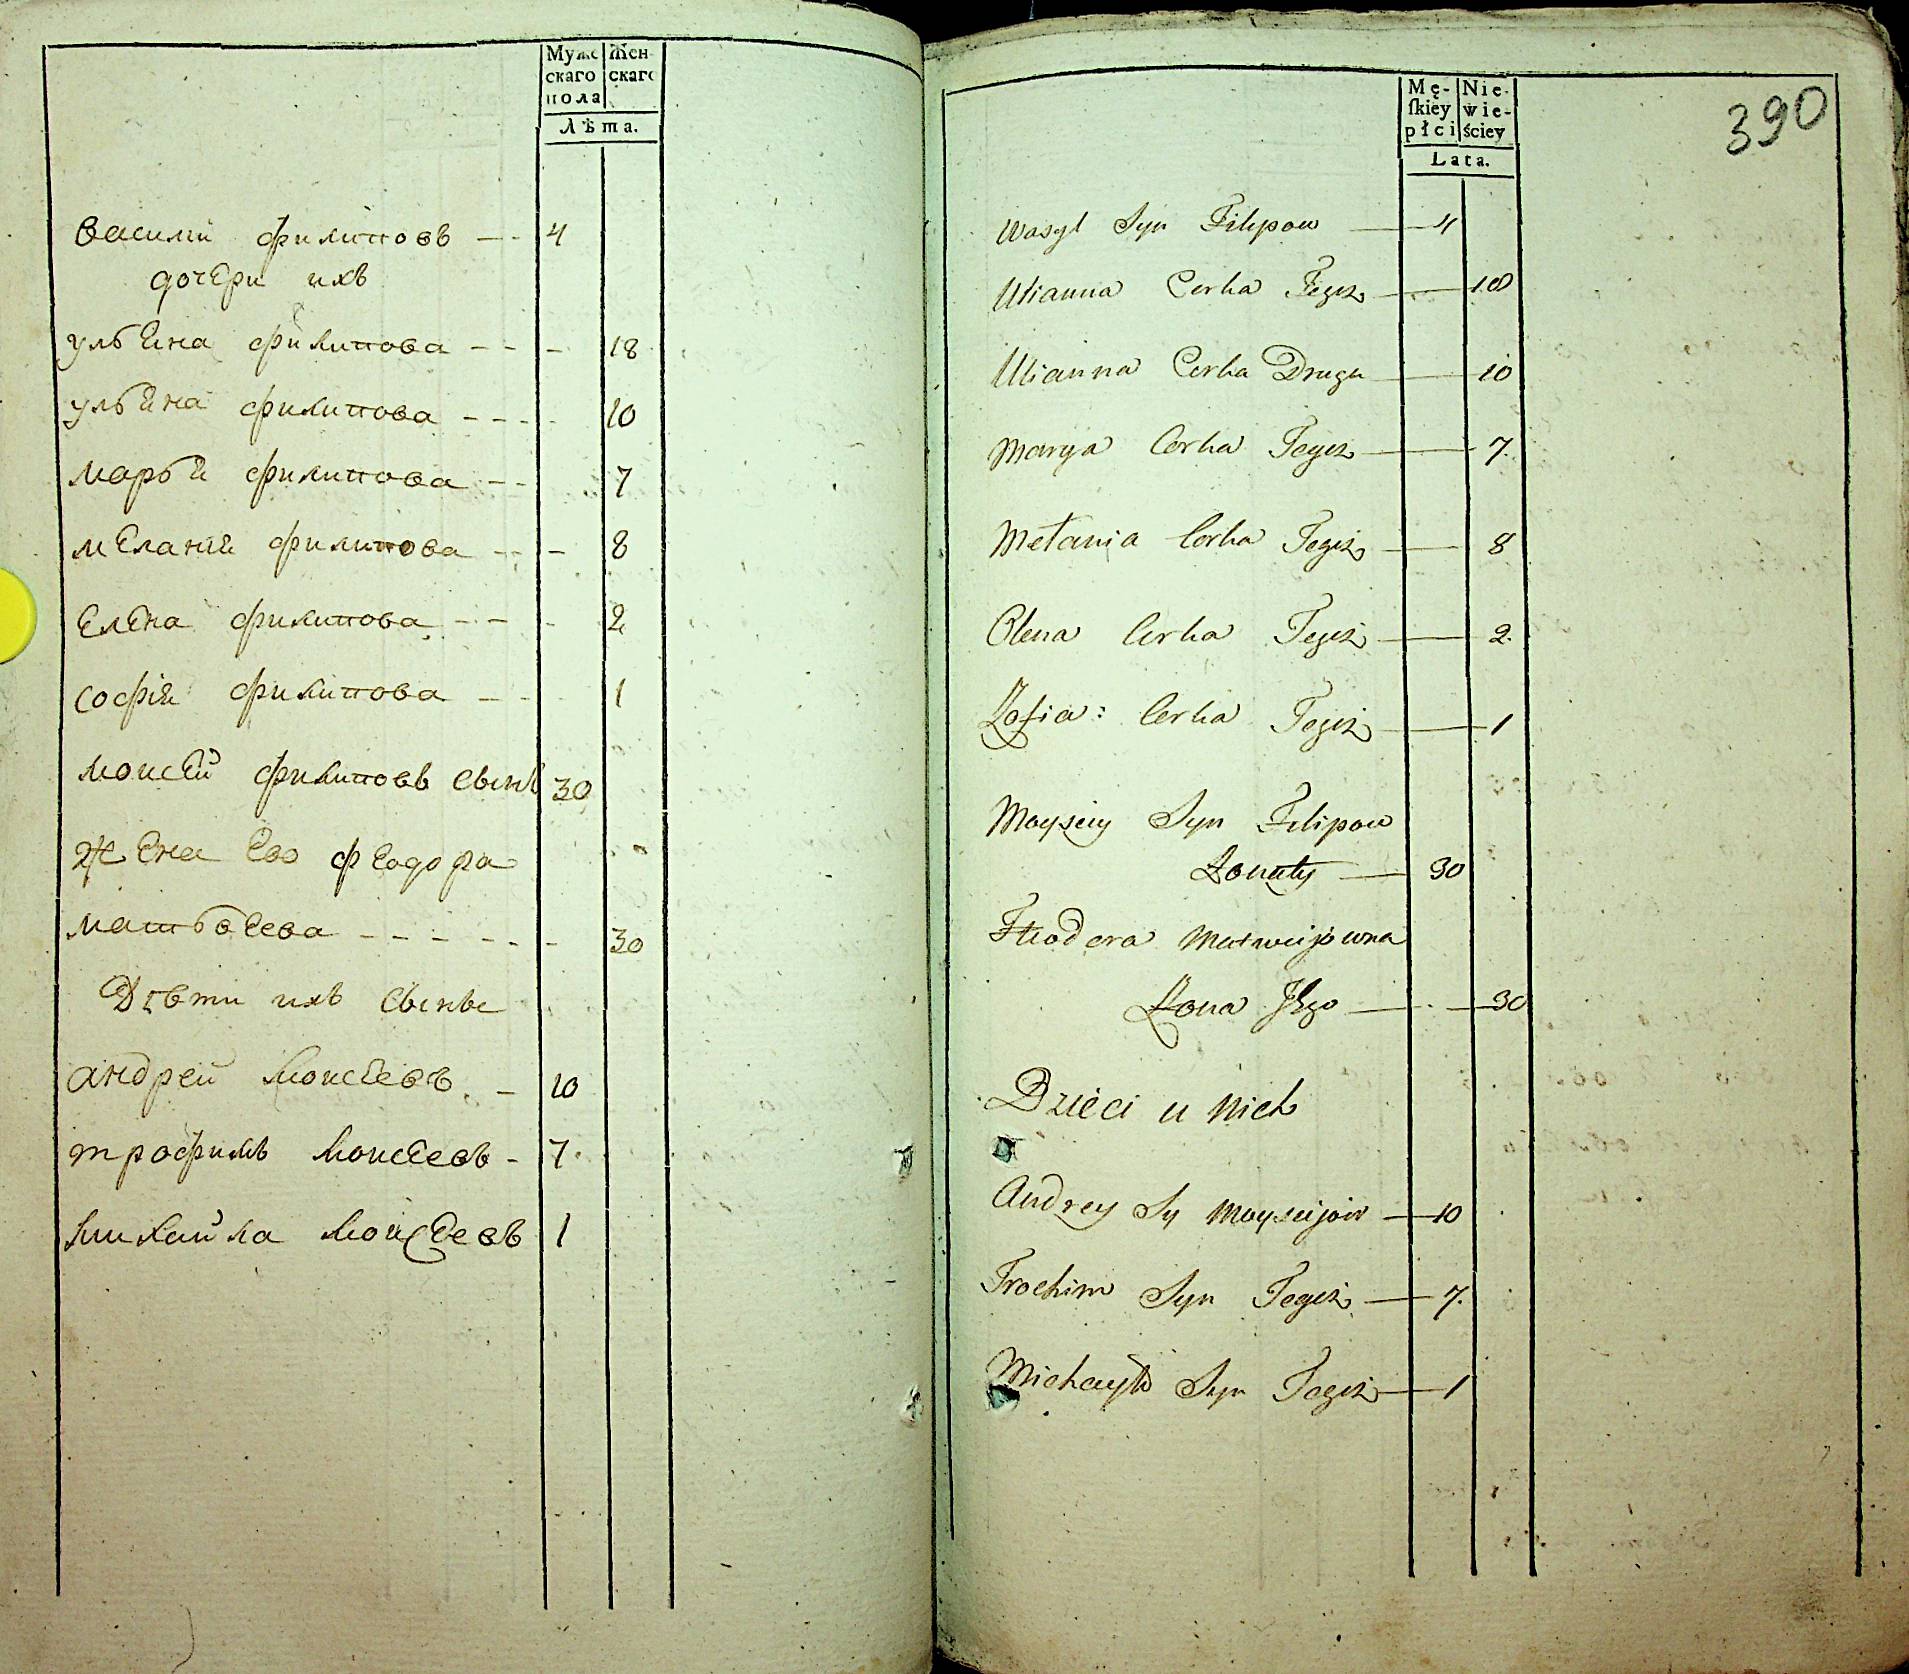 Муже
скаго
пола
Жен-
скаго
Лѣта.
Василий Филиповъ — - 4
дочери ихъ
Ульяна Филипова - - - 18
Ульяна Филипова - - - - 10
Марья Филипова - - 7
Меланія Филипова - - - 8
Елена Филипова - - - 2
Софія Филипова - - 1
Моисей Филиповъ сынъ 30
Жена Его Феодора
Матвеева - - - - - - 30
Дѣти ихъ сынъе
Андрей Моисеевъ - 10
Трофимъ Моисеевъ - 7
Михайла Моисеевъ 1
390
Mę-
skiey
płci
Nie-
wie-
ściey
Lata.
Wasyl Syn Filipow — 4
Ulianna Corka Tegoż — 18
Ulianna Corka Druga — 10
Marya Corka Tegoż — 7.
Mełania Corka Tegoż — 8
Olena Corka Tegoż — 2.
Zofia: Corka Tegoż — 1
Moysiey Syn Filipow
Żonaty — 30
Theodora Matweijowna
Żona Jego — 30
Dzieci u Nich
Andrey Sy Moyseijow — 10
Trochim Syn Tegoż — 7.
Michayło Syn Tegoż — 1